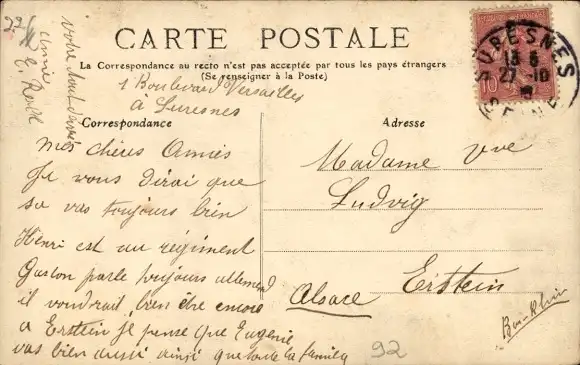 CARTE POSTALE
La Correspondance au recto n'est pas acceptée par tous les pays étrangers
(Se renseigner à la Poste)
1 Boulevard Versailles
à Suresnes
Correspondance
Mes chères Amies
Je vous dirai que
sa vas toujours bien
Henri est au régiment
Gaston parle toujours allemend
il voudrait bien être encore
a Erstein je pense que Eugenie
vas bien aussi ainsi que toute la family
votre tout
Amie
E.
Adresse
Madame Vve
Ludvig
Erstein
Alsace
Bas-Rhin
92
SURESNES
27 - 10
SEINE
10